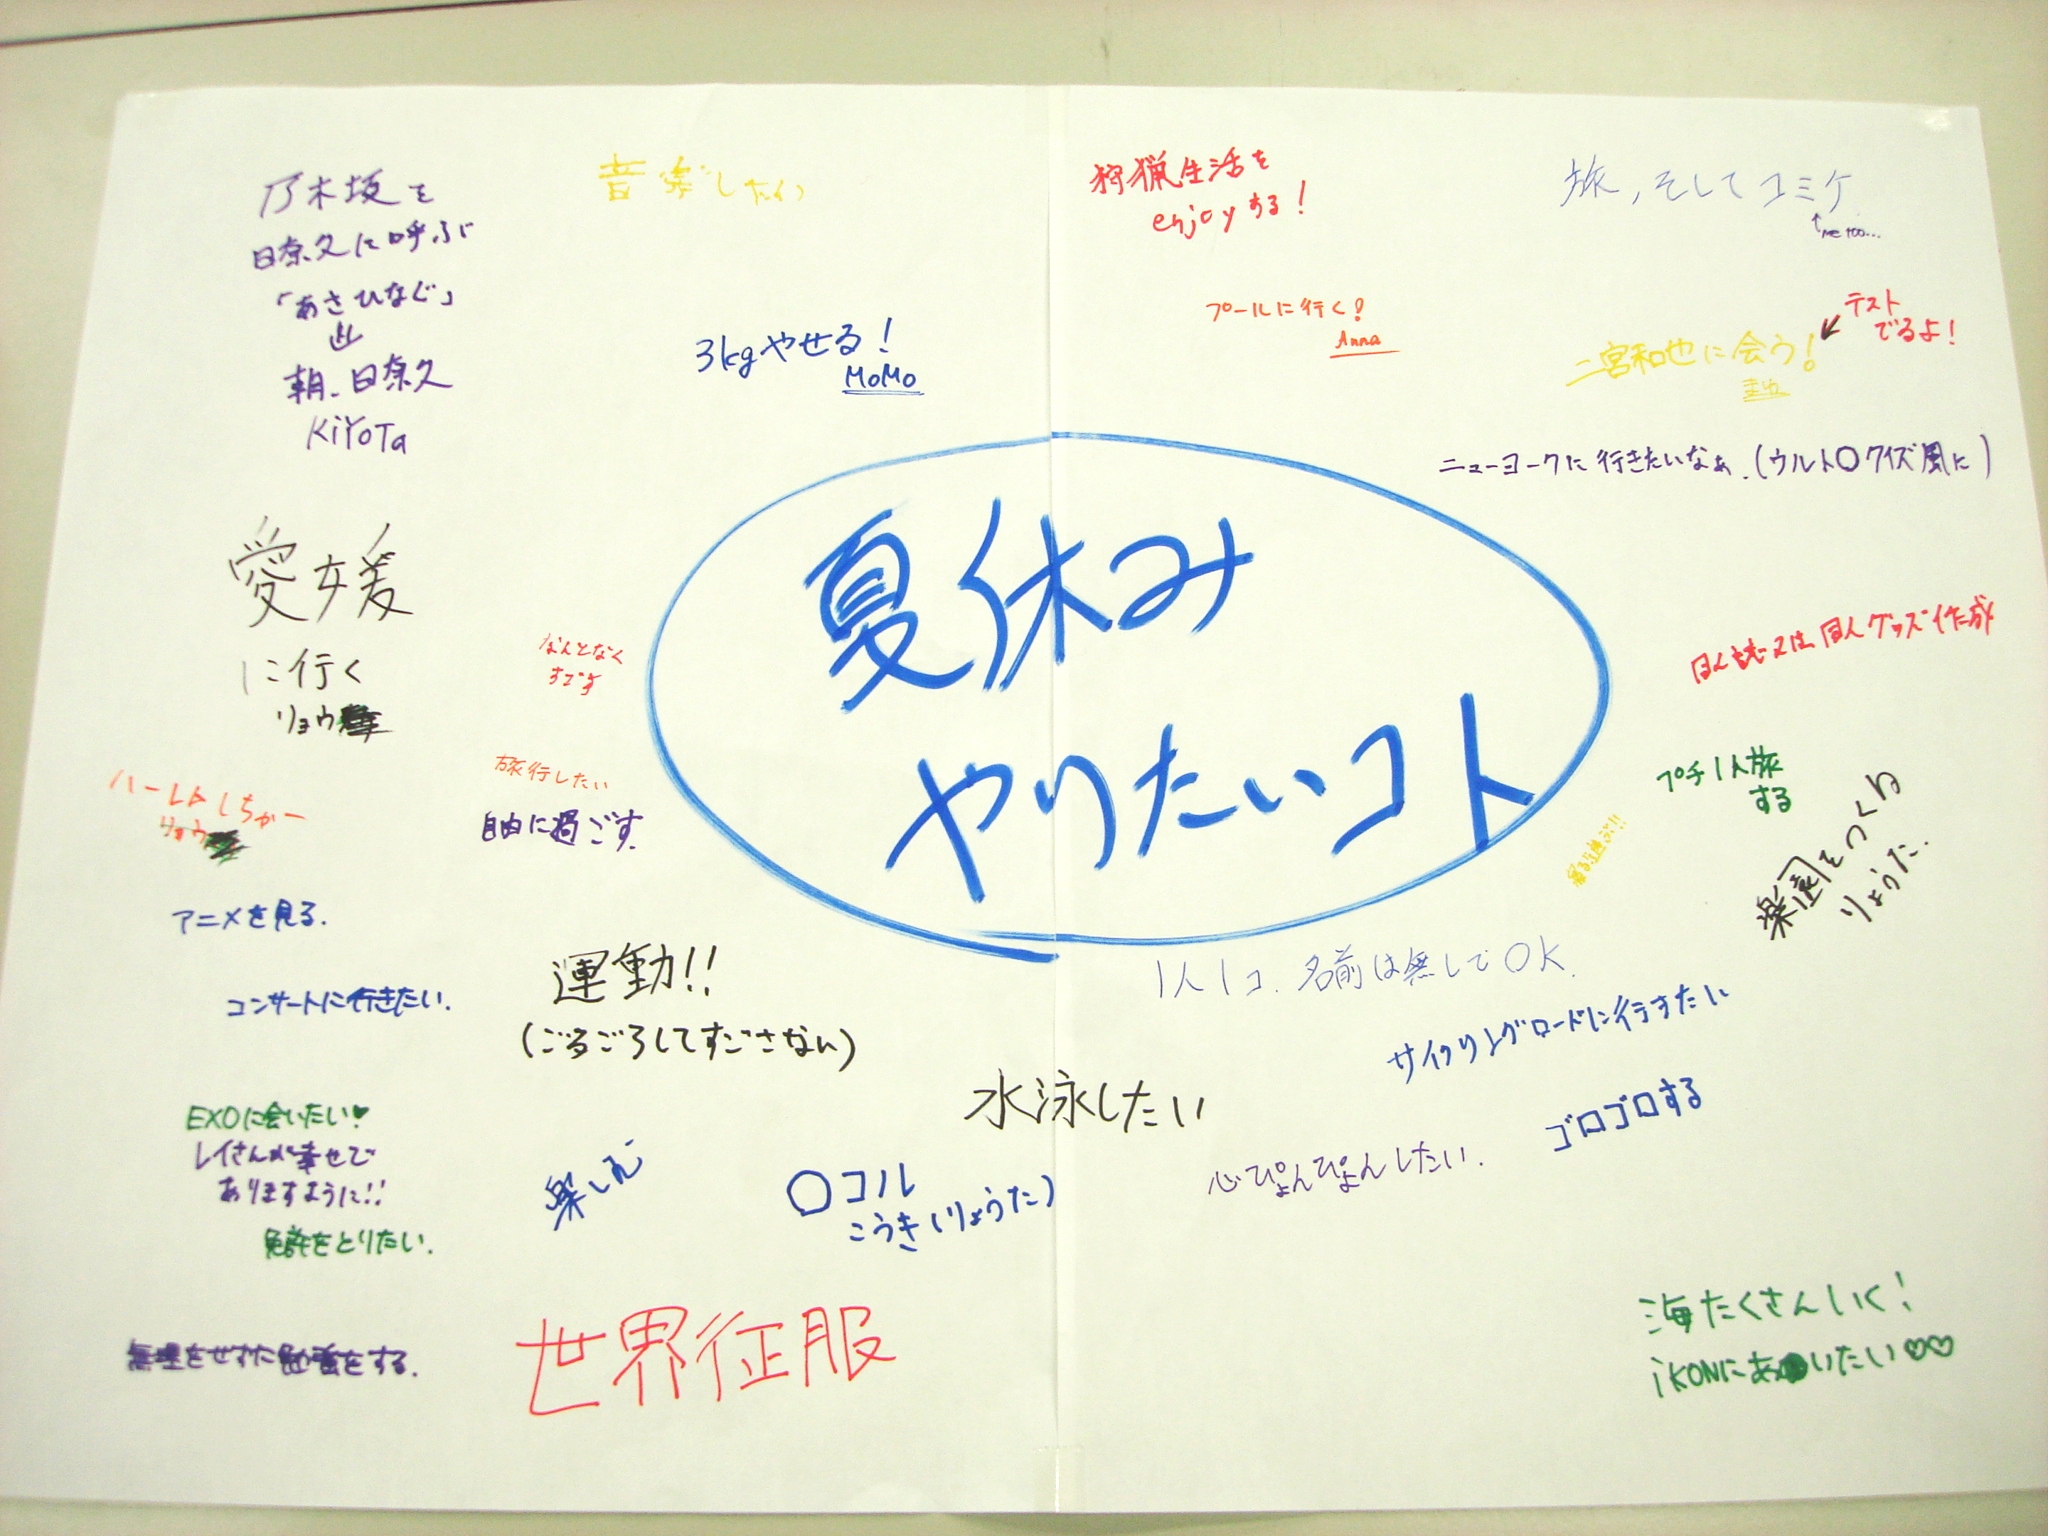 乃木坂を
日奈久に呼ぶ
「あさひなぐ」
⇓
朝、日奈久
KiYOTa
音楽したい
狩猟生活を
enjoyする!
旅,そしてコミケ
↑me too...
3kgやせる!
MoMo
プールに行く!
Anna
テスト
でるよ!
二宮和也に会う!
ニューヨークに行きたいなぁ.(ウルト〇クイズ風に)
夏休み
やりたいコト
愛媛
に行く
リョウ
なんとなく
すごす
旅行したい
自由に過ごす.
同人誌又は同人グッズ作成
プチ1人旅
する
楽園をつくる
りょうた.
ハーレムしちゃー
リョウ
アニメを見る.
コンサートに行きたい.
運動!!
(ごろごろしてすごさない)
1人1コ.名前は無しでOK.
サイクリングロードに行きたい
水泳したい
ゴロゴロする
心ぴょんぴょんしたい.
EXOに会いたい♥
レイさんが幸せで
ありますように!!
免許をとりたい.
楽しむ
〇コル
こうき(りょうた)
世界征服
無理をせずた勉強をする.
海たくさんいく!
iKONにあいたい♡♡